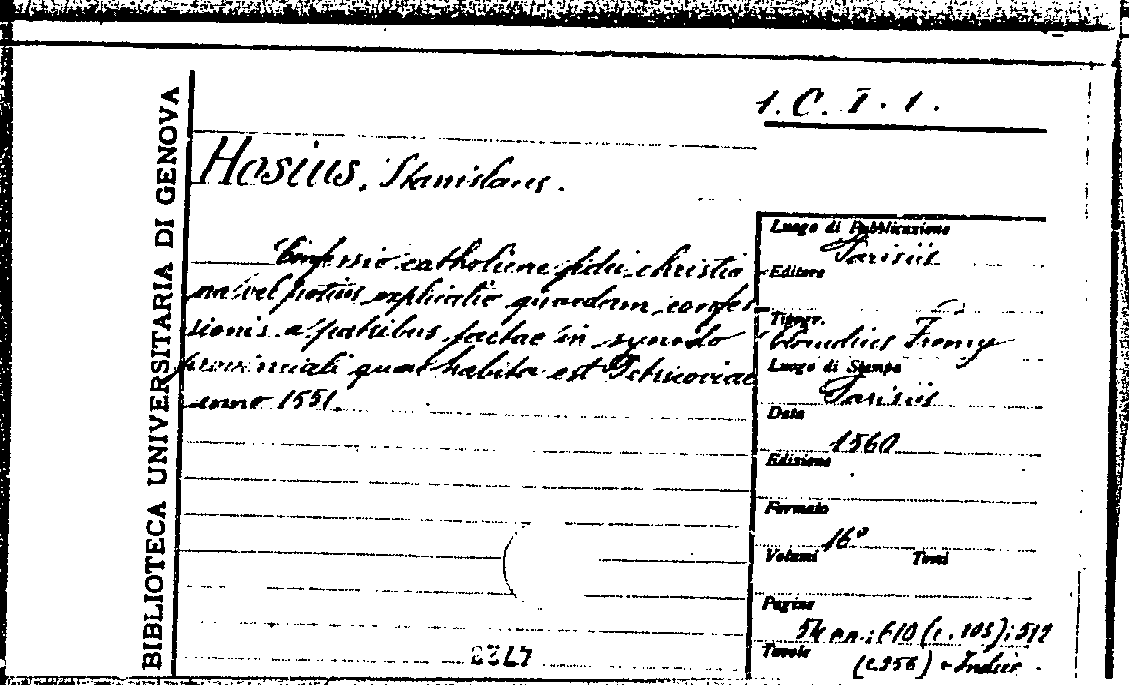 BIBLIOTECA UNIVERSITARIA DI GENOVA
1. C. I. 1.
Hosius, Stanislaus.
Confessio catholicae fidei christia
na vel potius explicatio quaedam confes-
sionis a patribus factae in synodo
provinciali quae habita est Petricoviae
anno 1551
Luogo di Pubblicazione
Parisiis
Editore
Tipogr.
Claudius Fremy
Luogo di Stampa
Parisiis
Data
1560
Edizione
Formato
16°
Volumi Tomi
Pagine
nn.; 610 (c. 105); 512
Tavole
(c. 256) + Indici.